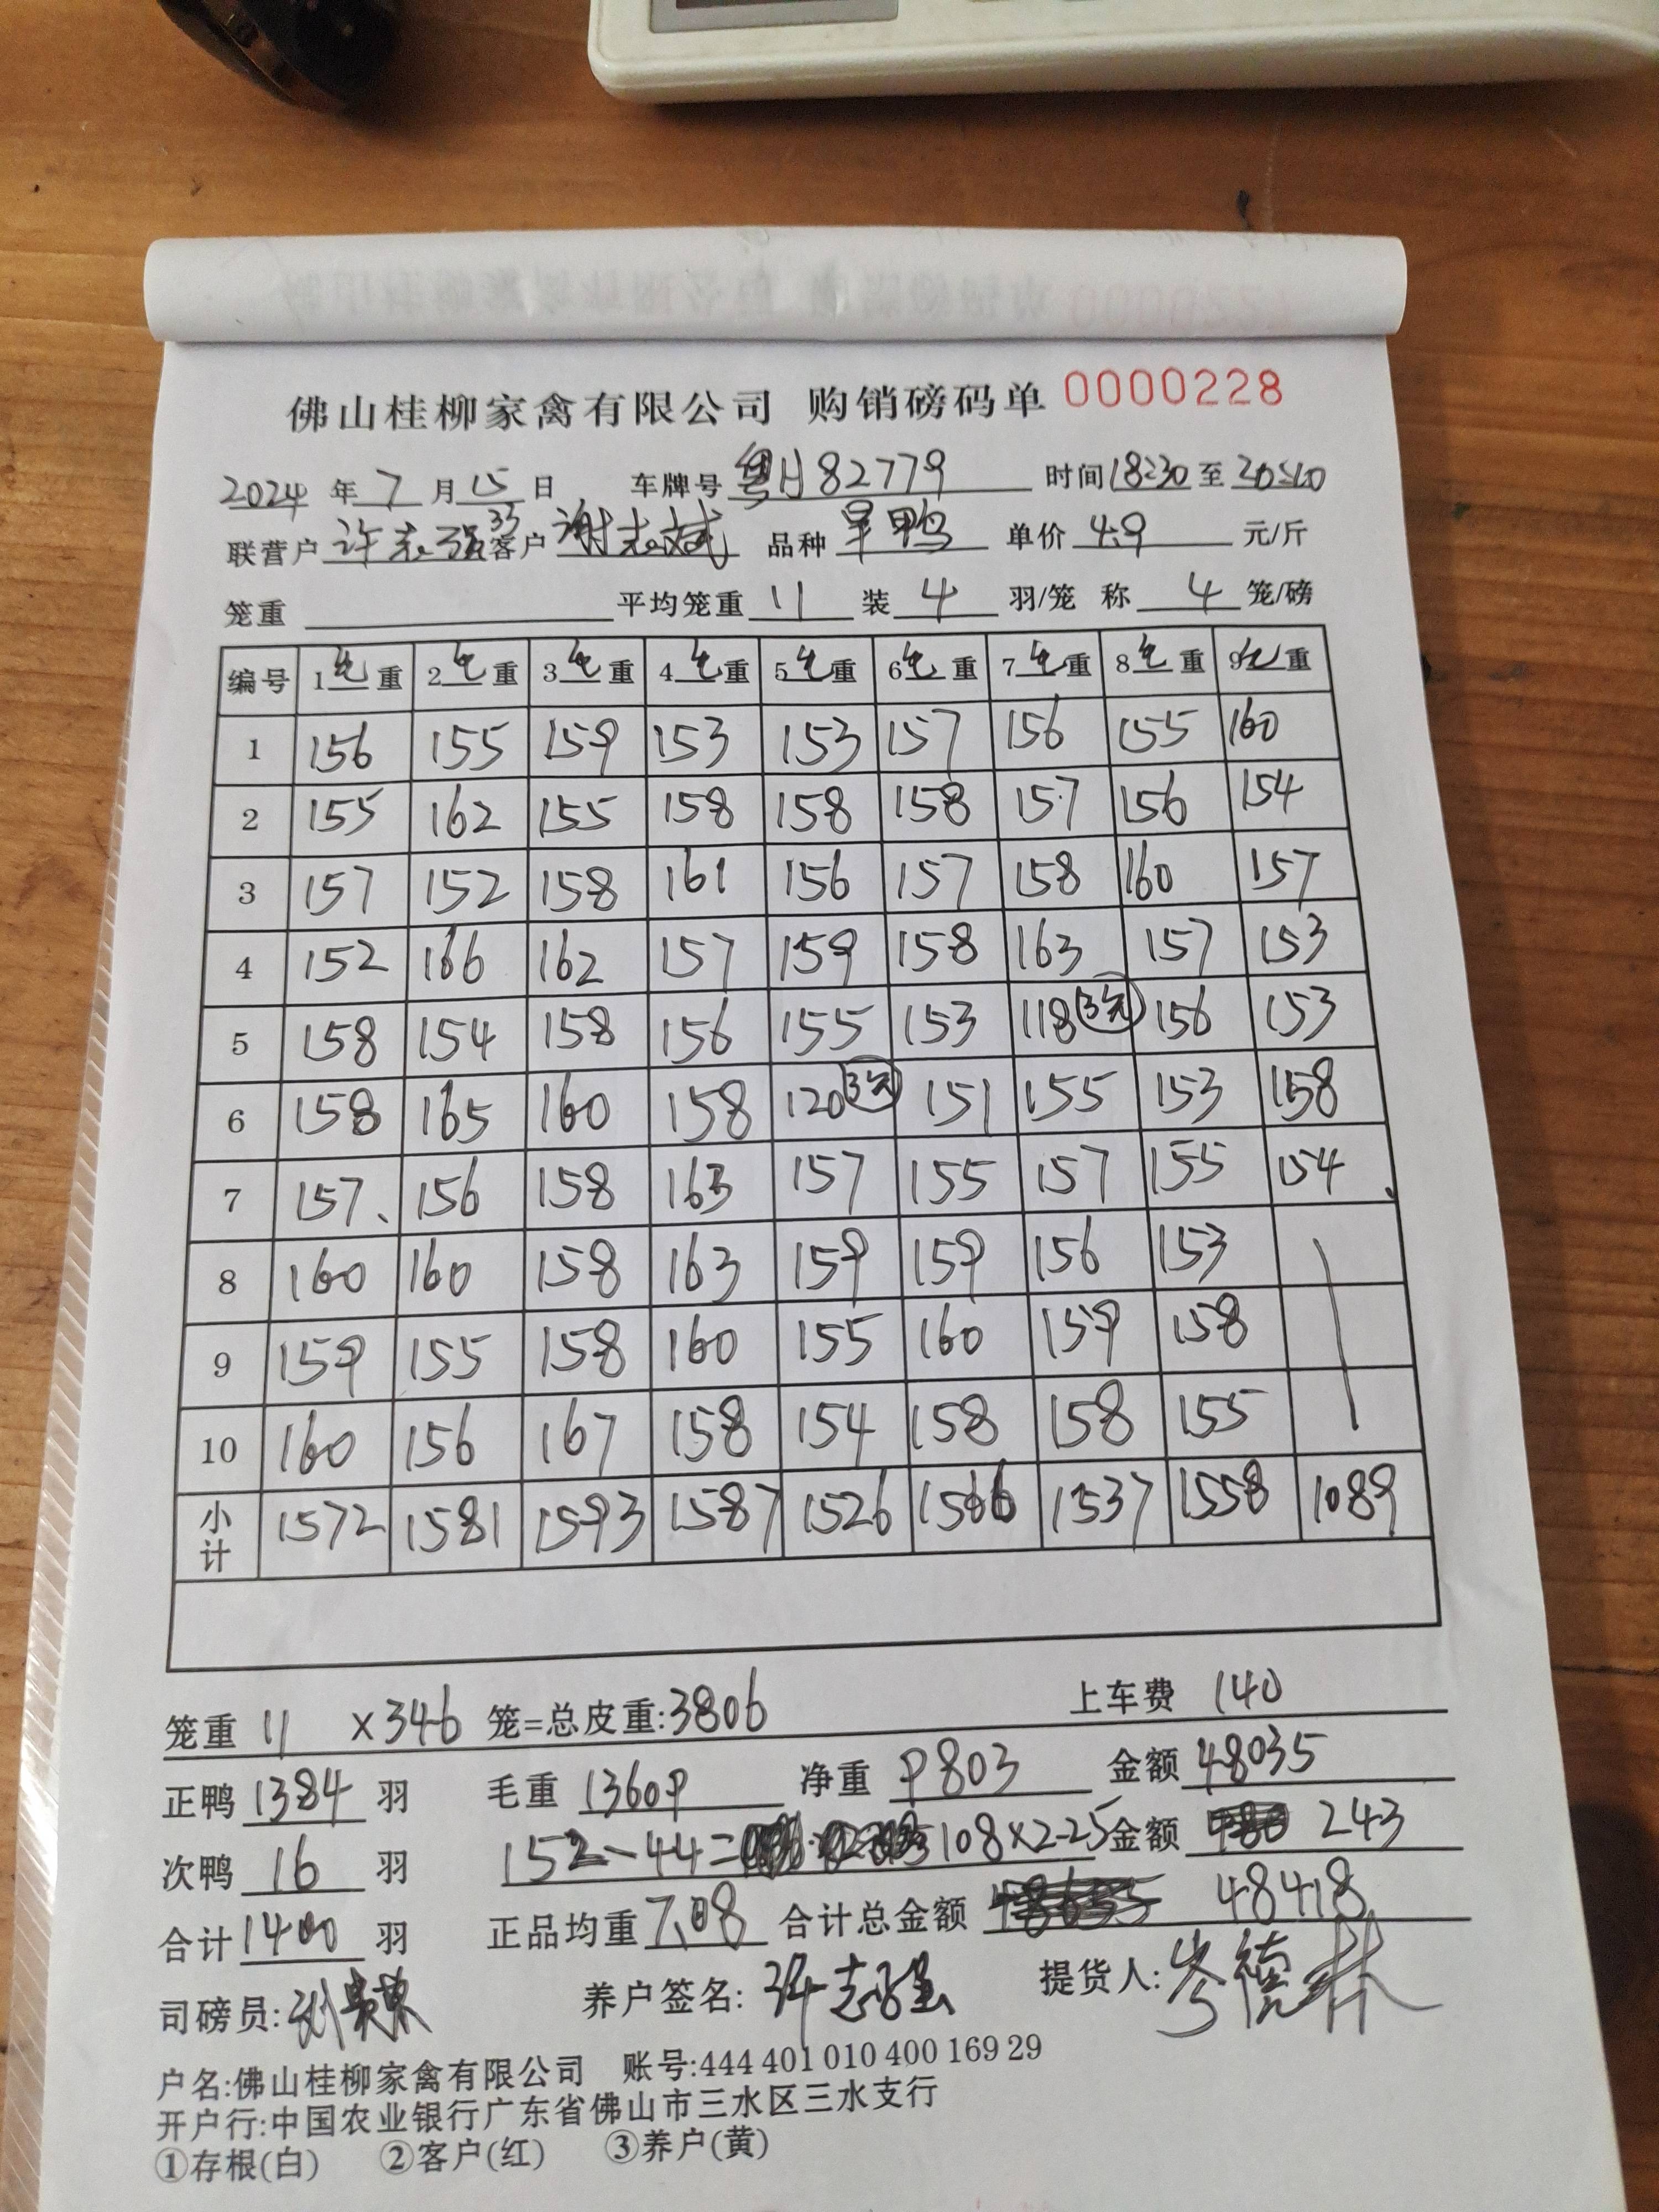 佛山桂柳家禽有限公司 购销磅码单 0000228
2024 年 7 月 15 日 车牌号 粤H82779 时间 18:30 至 20:10
联营户 许志强33 客户 谢志斌 品种 旱鸭 单价 4.9 元/斤
笼重 平均笼重 11 装 4 羽/笼 称 4 笼/磅
编号 1毛重 2毛重 3毛重 4毛重 5毛重 6毛重 7毛重 8毛重 9毛重
1 156 155 159 153 153 157 156 155 160
2 155 162 155 158 158 158 157 156 154
3 157 152 158 161 156 157 158 160 157
4 152 166 162 157 159 158 163 157 153
5 158 154 158 156 155 153 118 3笼 156 153
6 158 165 160 158 120 3笼 151 155 153 158
7 157、 156 158 163 157 155 157 155 154
8 160 160 158 163 159 159 156 153
9 159 155 158 160 155 160 159 158
10 160 156 167 158 154 158 158 155
小计 1572 1581 1593 1587 1526 1566 1537 1558 1089
笼重 11 ×346 笼=总皮重:3806 上车费 140
正鸭 1384 羽 毛重 13609 净重 9803 金额 48035
次鸭 16 羽 152-44= 108×2-25 金额 243
合计 1400 羽 正品均重 7.08 合计总金额 48418
司磅员: 养户签名: 许志强 提货人: 岑德林
户名:佛山桂柳家禽有限公司 账号:444 401 010 400 169 29
开户行:中国农业银行广东省佛山市三水区三水支行
①存根(白) ②客户(红) ③养户(黄)